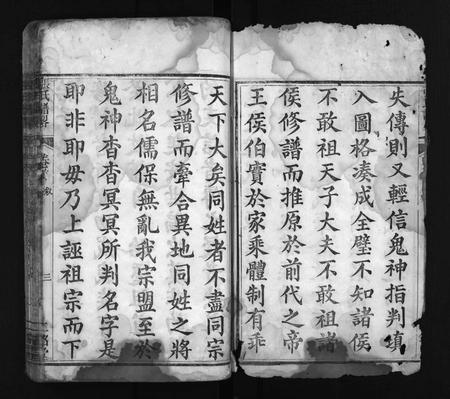 失傳則又輕信鬼神指判填
入圖格湊成全璧不知諸侯
不敢祖天子大夫不敢祖諸
侯修譜而推原於前代之帝
王侯伯實於家乘體制有乖
天下大矣同姓者不盡同宗
修譜而牽合異地同姓之將
相名儒保無亂我宗盟至於
鬼神杳杳冥冥所判名字是
耶非耶毋乃上誣祖宗而下